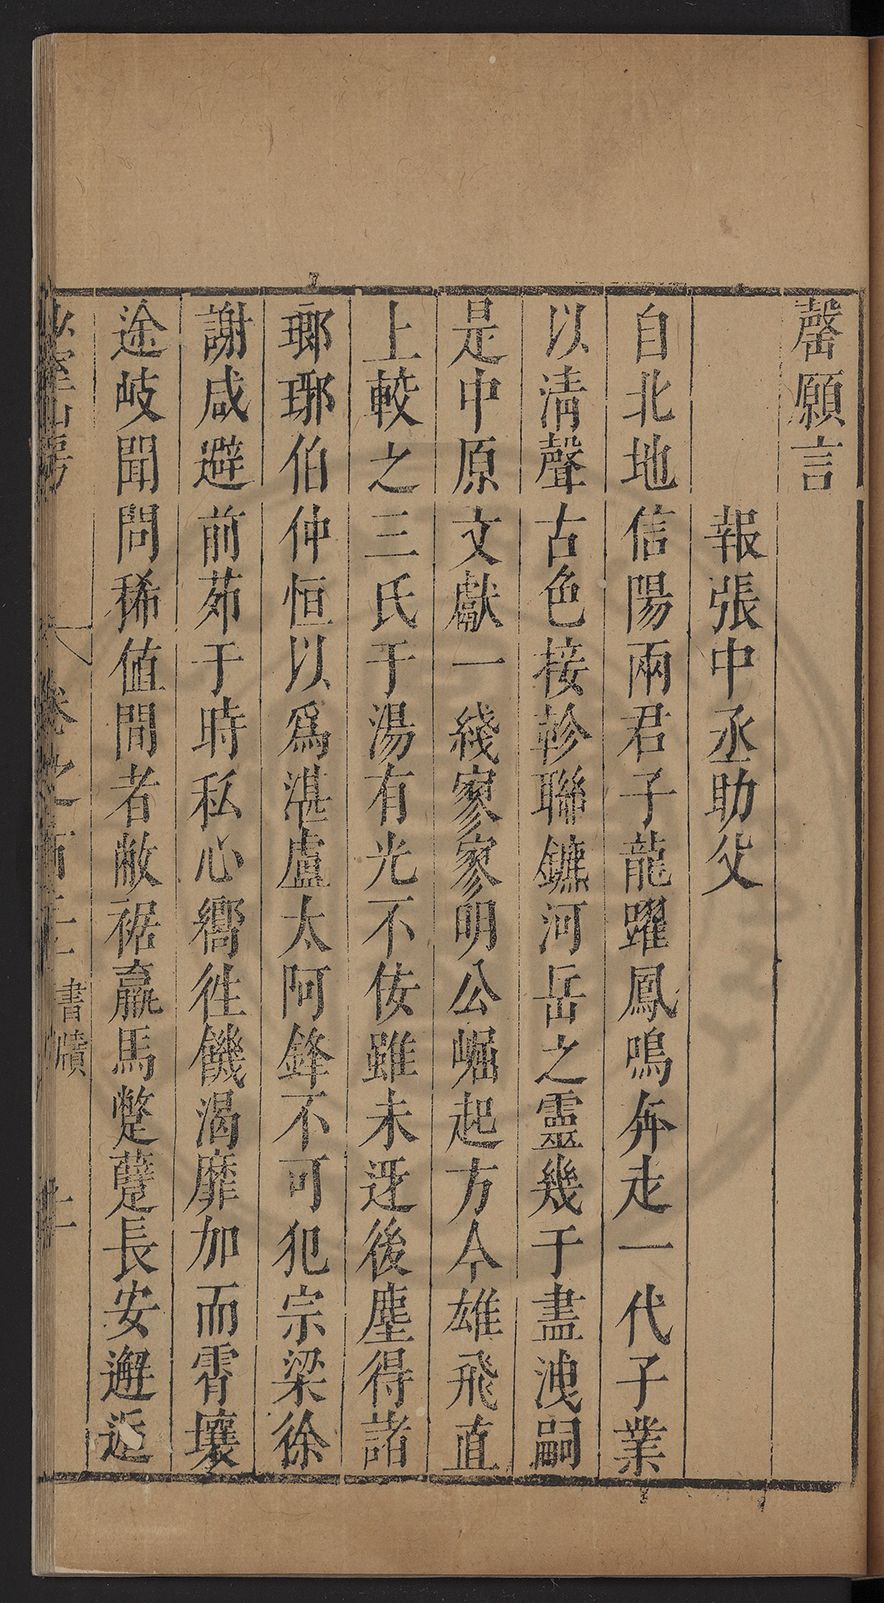 罄願言
報張中丞助父
自北地信陽兩君子龍躍鳳鳴奔走一代子業
以清聲古色接軫聯鑣河岳之靈幾于盡洩嗣
是中原文獻一綫寥寥明公崛起方今雄飛直
上較之三氏于湯有光不佞雖未迓後塵得諸
瑯琊伯仲恒以爲湛盧太阿鋒不可犯宗梁徐
謝咸避前茆于時私心嚮徃饑渴靡加而霄壤
途岐聞問稀值間者敝裾羸馬蹩躠長安邂逅
山房
卷之百十
書牘